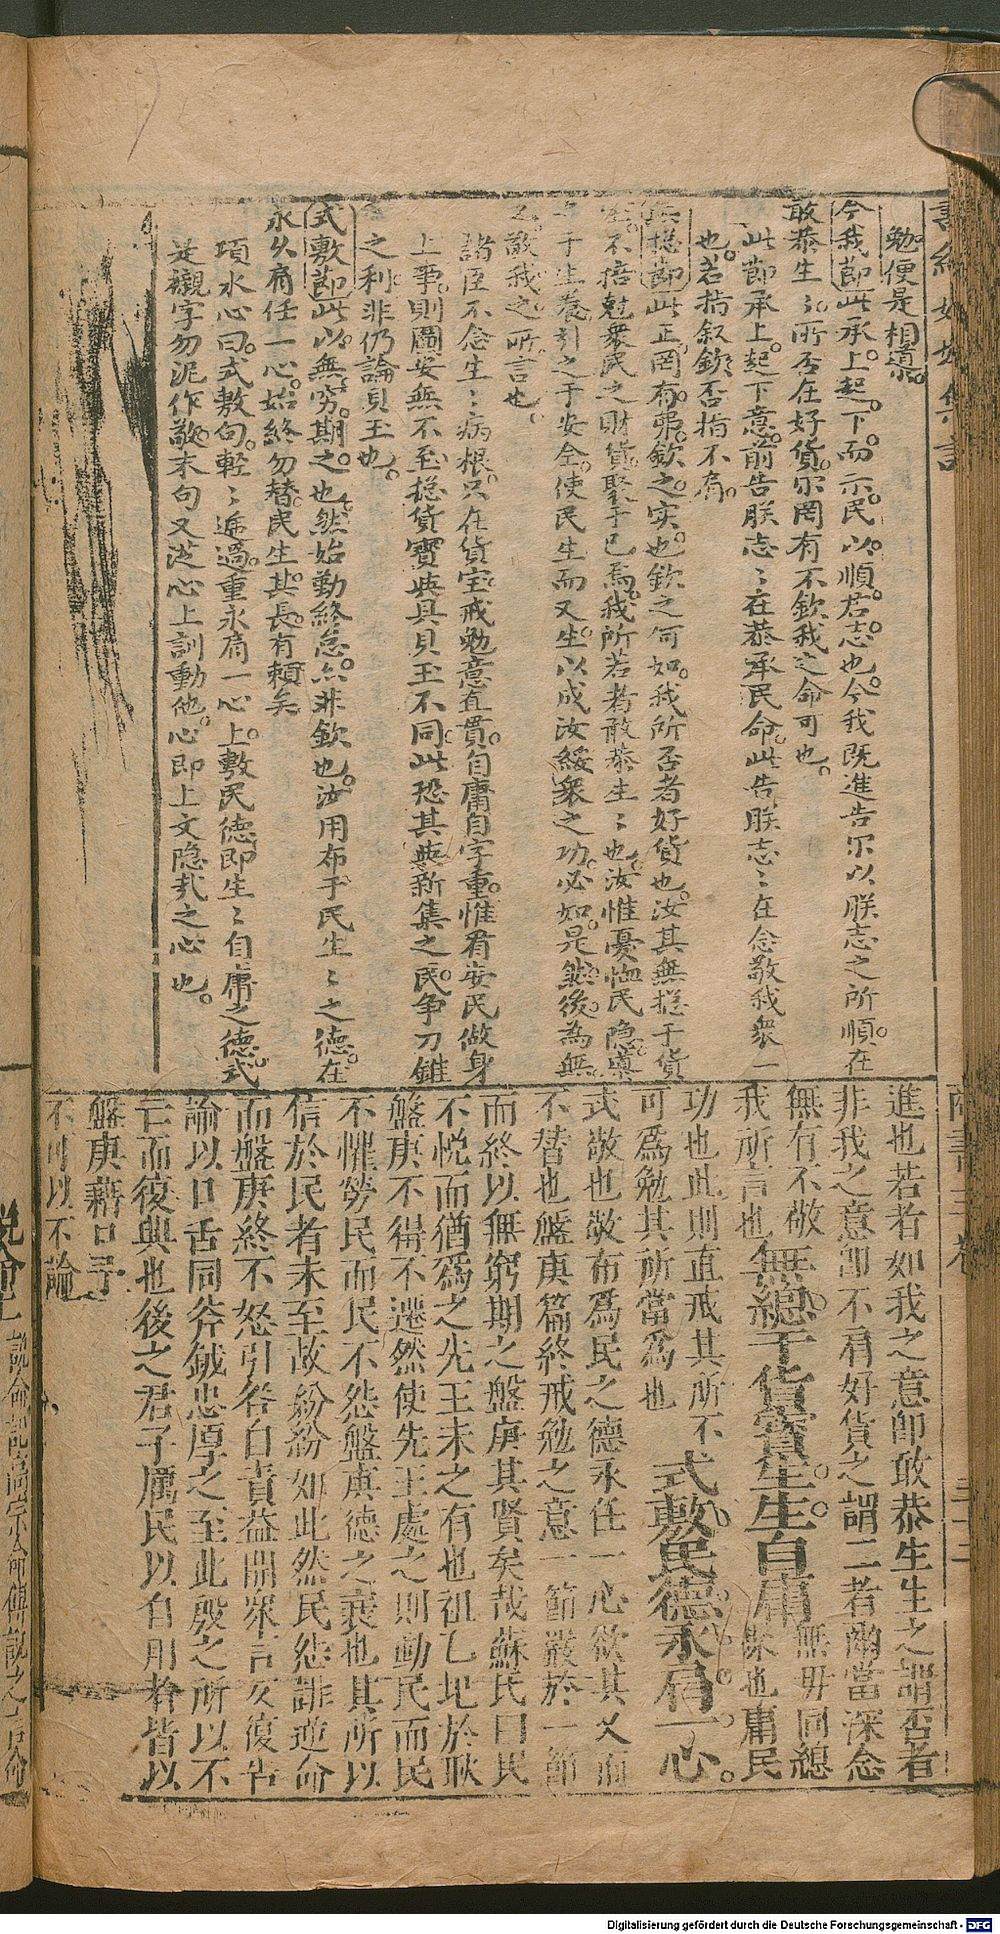 勉便是相導
今我節此承上起下而示民以順若志也今我既進告尔以朕志之所順在
敢恭生〻所否在好貨尔罔有不欽我之命可也
此節承上起下意前告朕志〻在恭承民命此告朕志〻在念敬我衆一
也若指叙欽否指不肩
無捴節此正罔有弗欽之实也欽之何如我所否者好貨也汝其無捴于貨
宝不掊尅衆民之財貨聚于己焉我所若者敢恭生〻也汝惟憂恤民隐奠
之于生養引之于安全使民生而又生以成汝綏衆之功必如是然後為無
不敬我之所言也
諸臣不念生〻病根只在貨宝戒勉意直貫自庸自字重惟看安民做身
上事則圖安無不至捴貨寶與具貝玉不同此恐其與新集之民争刀錐
之利非仍論貝玉也
式敷節此以無穷期之也然始勤終怠亦非欽也汝用布于民生〻之德在
永久肩任一心始終勿替民生其長有賴矣
項水心曰式敷句輕〻逓過重永肩一心上敷民德即生〻自庸之德式
是襯字勿泥作敬末句又從心上訓動他心即上文隐哉之心也
商書 三卷
進也若者如我之意即敢恭生生之謂否者
非我之意即不肩好貨之謂二者爾當深念
無有不敬我所言也
無總于貨寶生生自庸
無毋同總聚也庸民功也此則直戒其所不可爲勉其所當爲也
式敷民德永肩一心
式敬也敬布爲民之德永任一心欲其久而
不替也盤庚篇終戒勉之意一節嚴於一節
而終以無窮期之盤庚其賢矣哉蘇氏曰民
不悅而猶爲之先王未之有也祖乙圯於耿
盤庚不得不遷然使先王處之則動民而民
不懼勞民而民不怨盤庚德之衰也其所以
信於民者未至故紛紛如此然民怨誹逆命
而盤庚終不怒引咎自責益開衆言反復告
諭以口舌同斧鉞忠厚之至此殷之所以不
亡而復興也後之君子厲民以自用者皆以
盤庚藉口予
不可以不論
說命上
說命記高宗命傅說之言命
Digitalisierung gefördert durch die Deutsche Forschungsgemeinschaft - DFG